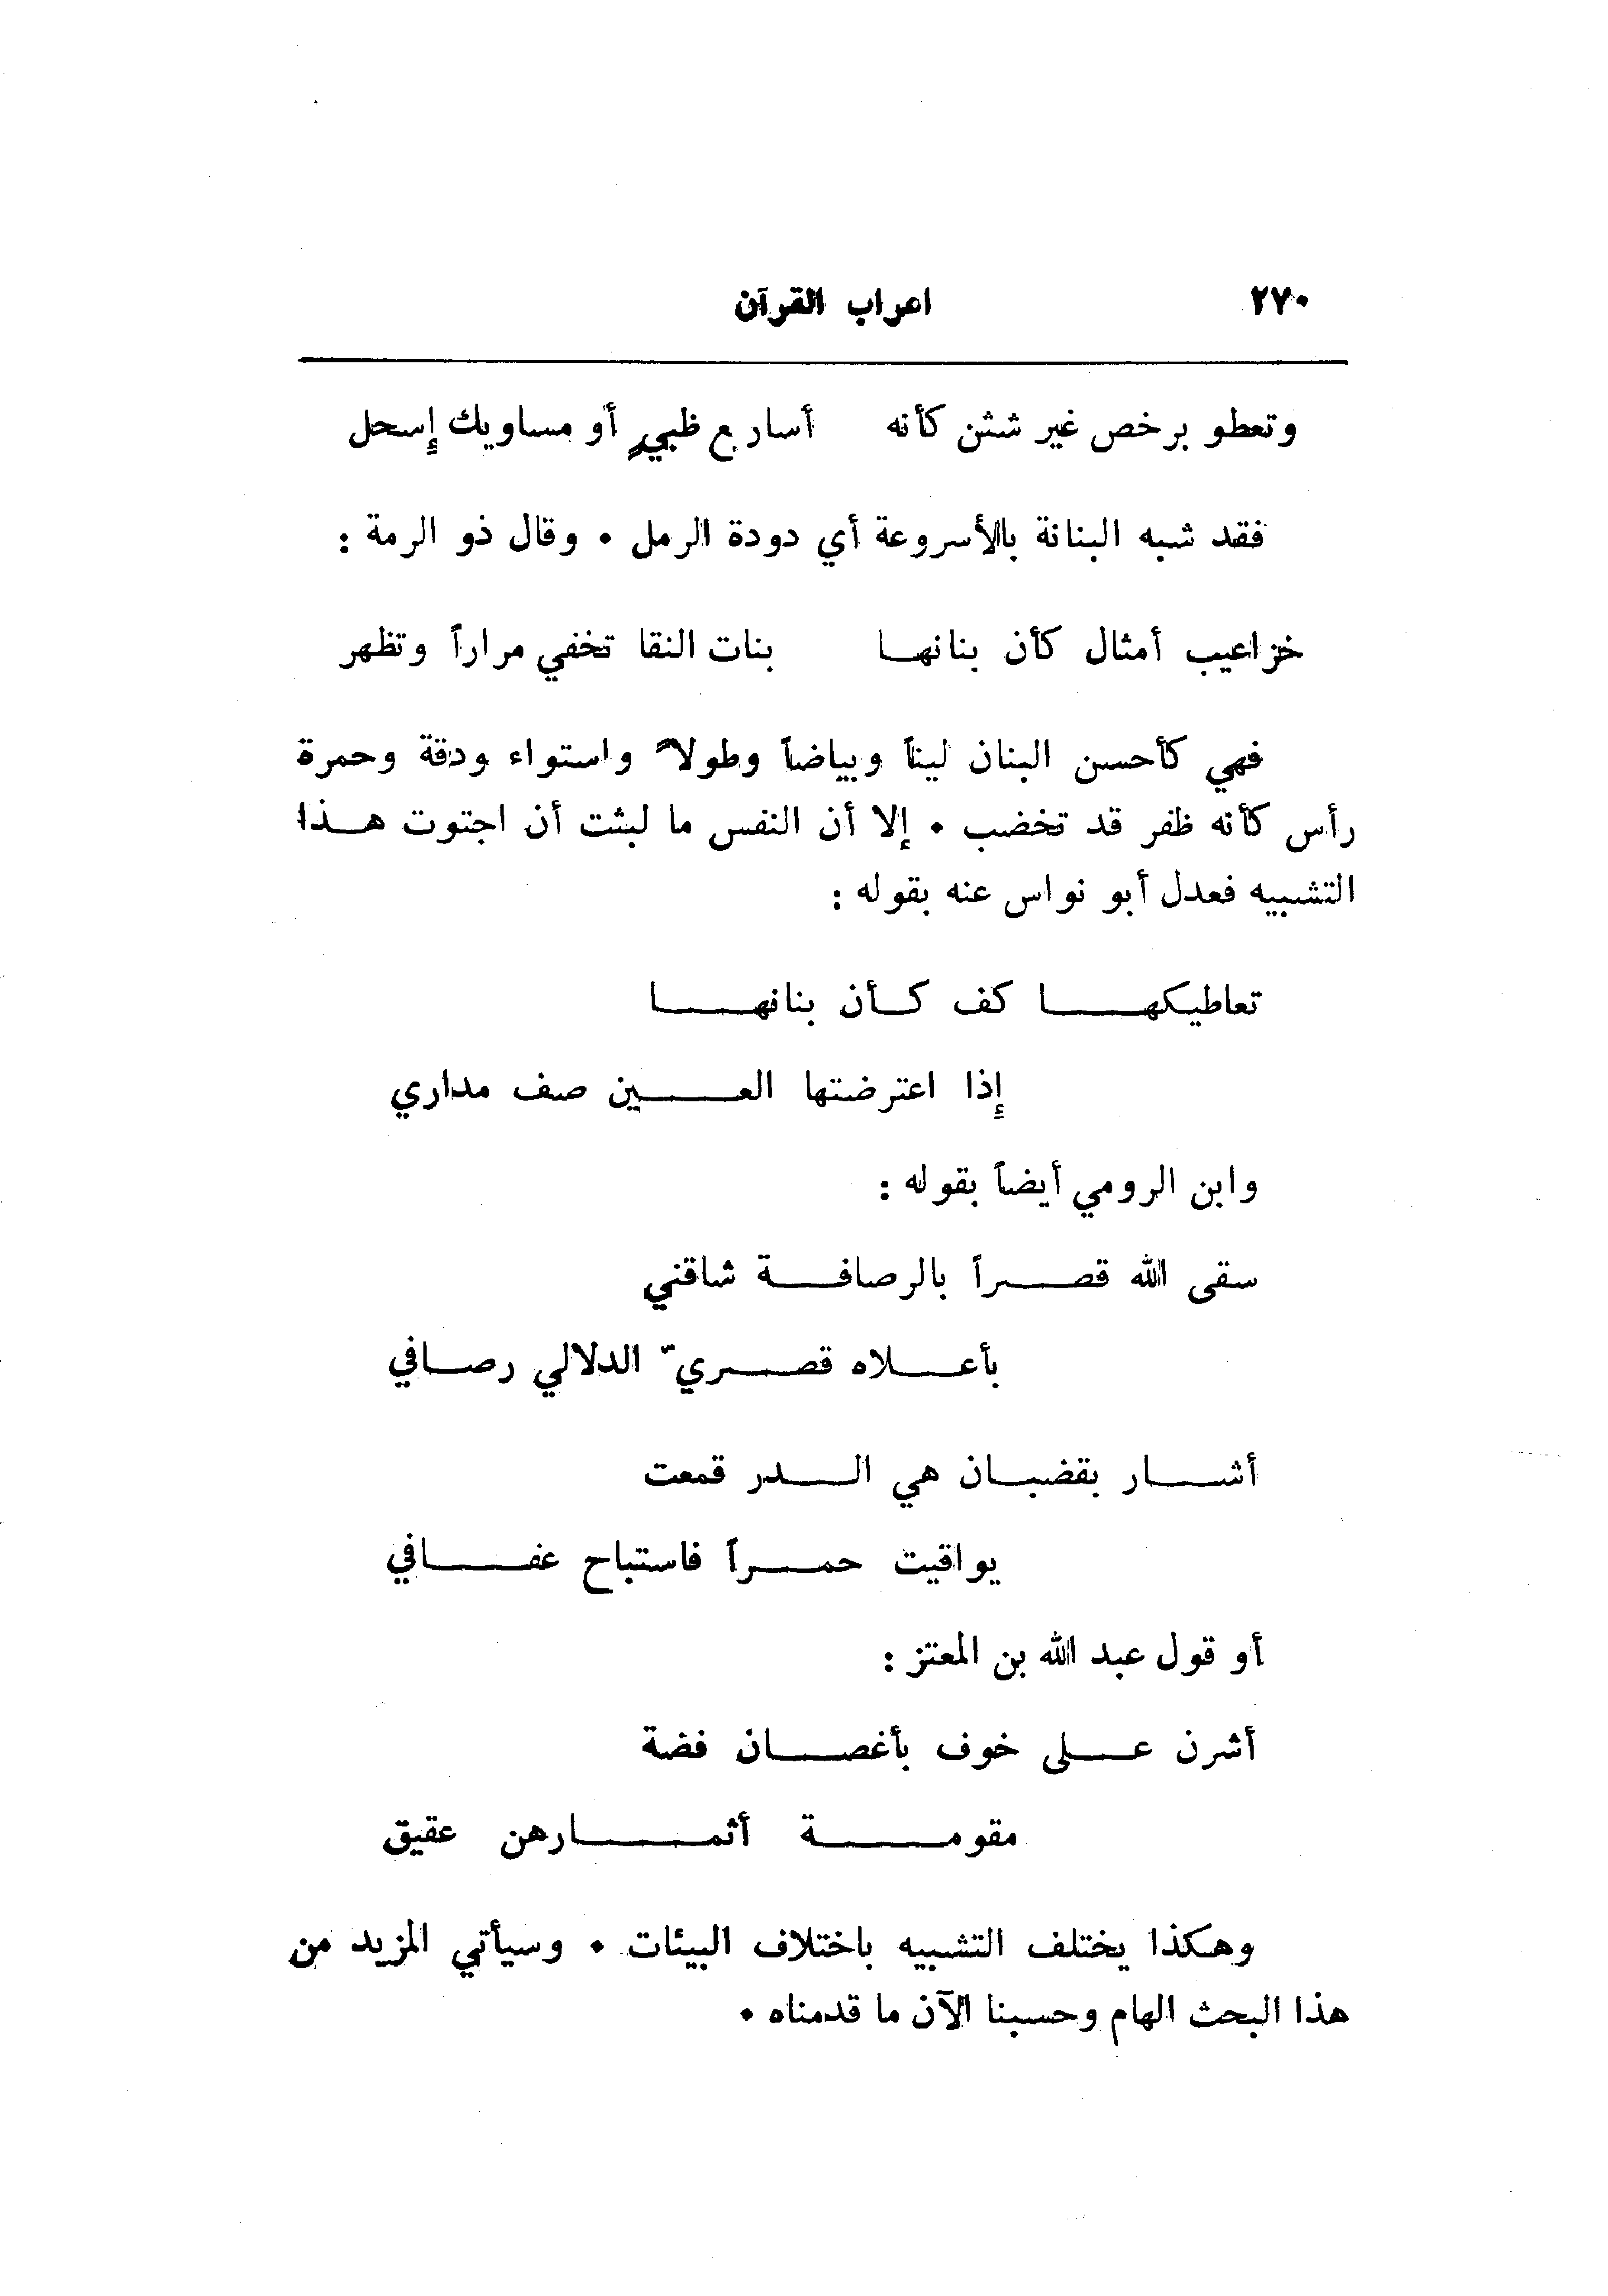 ٢٧٠ اعراب القرآن
وتعطو برخص غير شثن كأنه أساريع ظبيٍ أو مساويك إسحل
فقد شبه البنانة بالأسروعة أي دودة الرمل . وقال ذو الرمة :
خزاعيب أمثال كأن بنانهــا بنات النقا تخفي مراراً وتظهر
فهي كأحسن البنان ليناً وبياضاً وطولاً واستواء ودقة وحمرة
رأس كأنه ظفر قد تخضب . إلا أن النفس ما لبثت أن اجتوت هــذا
التشبيه فعدل أبو نواس عنه بقوله :
تعاطيكهــا كف كــأن بنانهــا
إذا اعترضتها العــين صف مداري
وابن الرومي أيضاً بقوله :
سقى الله قصــراً بالرصافــة شاقني
بأعــلاه قصــريّ الدلالي رصــافي
أشــار بقضبــان هي الــدر قمعت
يواقيت حمــراً فاستباح عفــافي
أو قول عبد الله بن المعتز :
أشرن عــلى خوف بأغصــان فضة
مقومــة أثمــارهن عقيق
وهكذا يختلف التشبيه باختلاف البيئات . وسيأتي المزيد من
هذا البحث الهام وحسبنا الآن ما قدمناه .